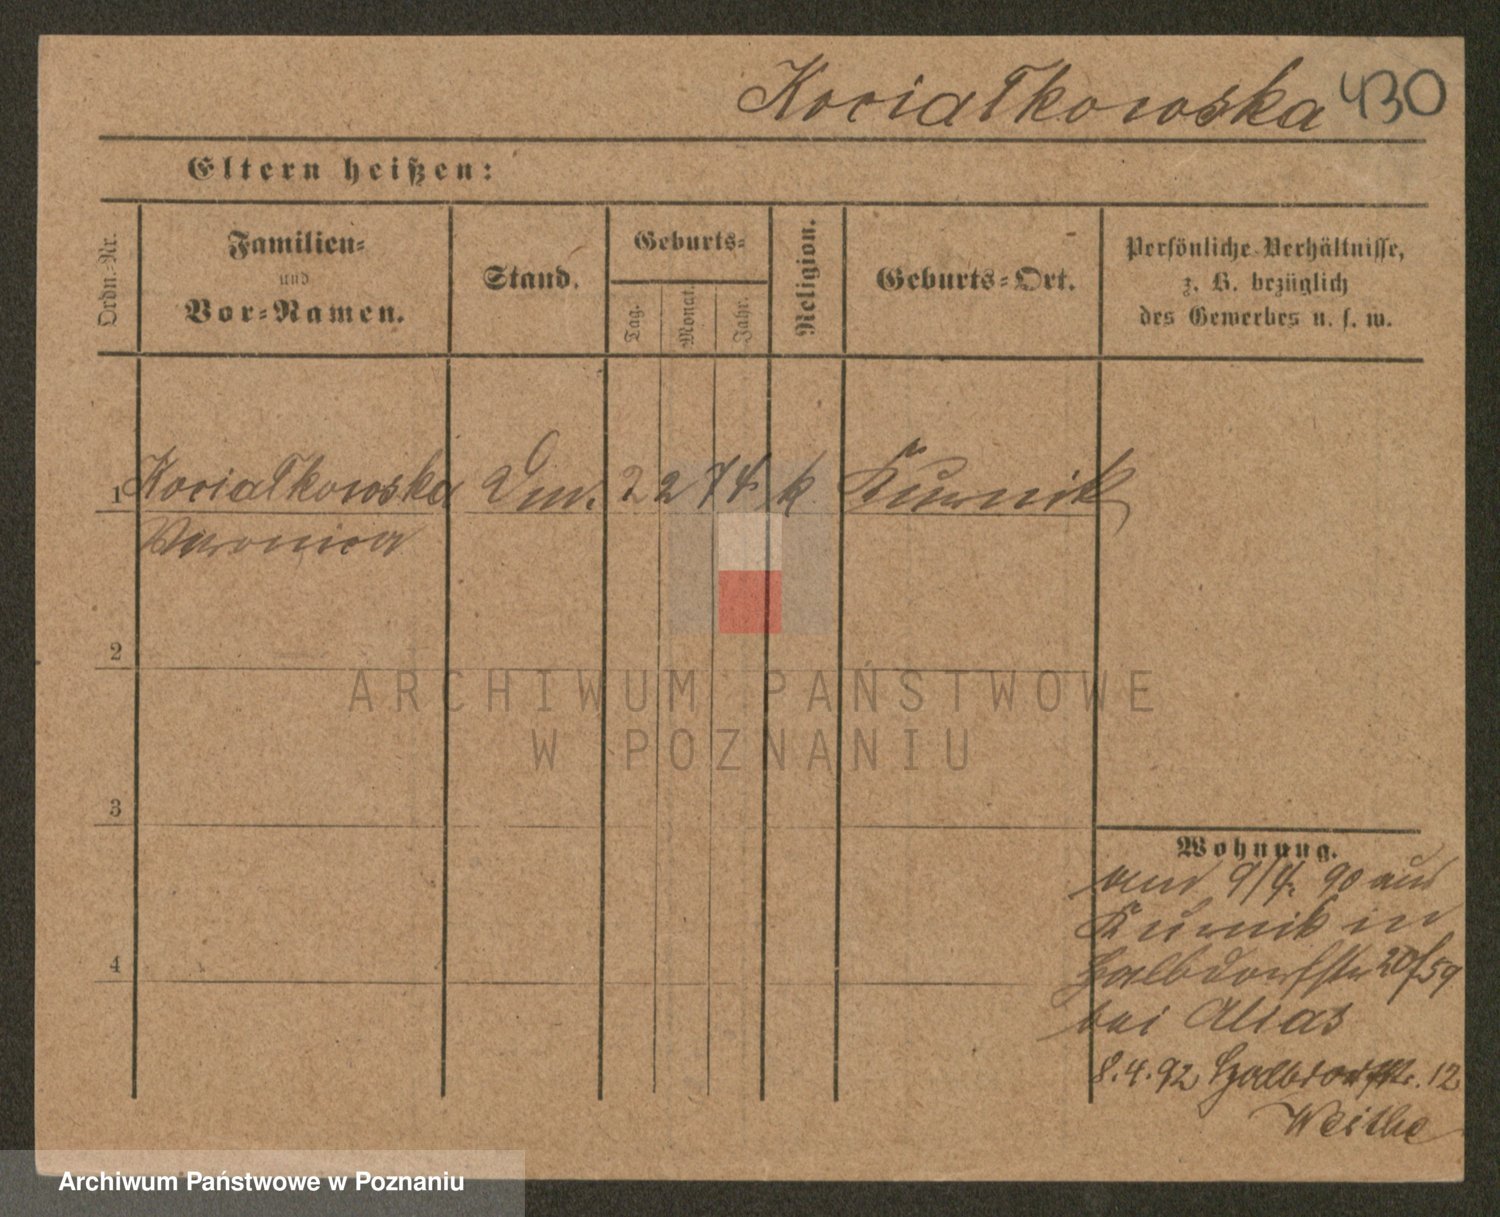 Kociałkowska 430
Eltern heißen:
Ordn.-Nr.
Familien-
und
Vor-Namen.
Stand.
Geburts-
Tag.
Monat.
Jahr.
Religion.
Geburts-Ort.
Persönliche Verhältnisse,
z. B. bezüglich
des Gewerbes u. s. w.
1 Kociałkowska 2 2 74 k Kurnik
Veronica
2
3
4
Wohnung.
9/4. 90 aus
Kurnik in
Halbdorfstr 20/59
bei Alias
8.4.92 Halbdorfstr. 12
ARCHIWUM PAŃSTWOWE
W POZNANIU
Archiwum Państwowe w Poznaniu